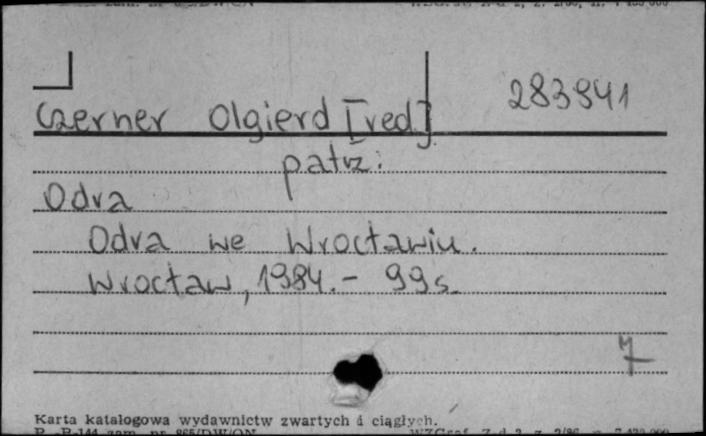 283941
Czerner Olgierd [red]
patrz:
Odra
Odra we Wrocławiu.
Wrocław, 1984. - 99 s.
7
Karta katalogowa wydawnictw zwartych i ciągłych.